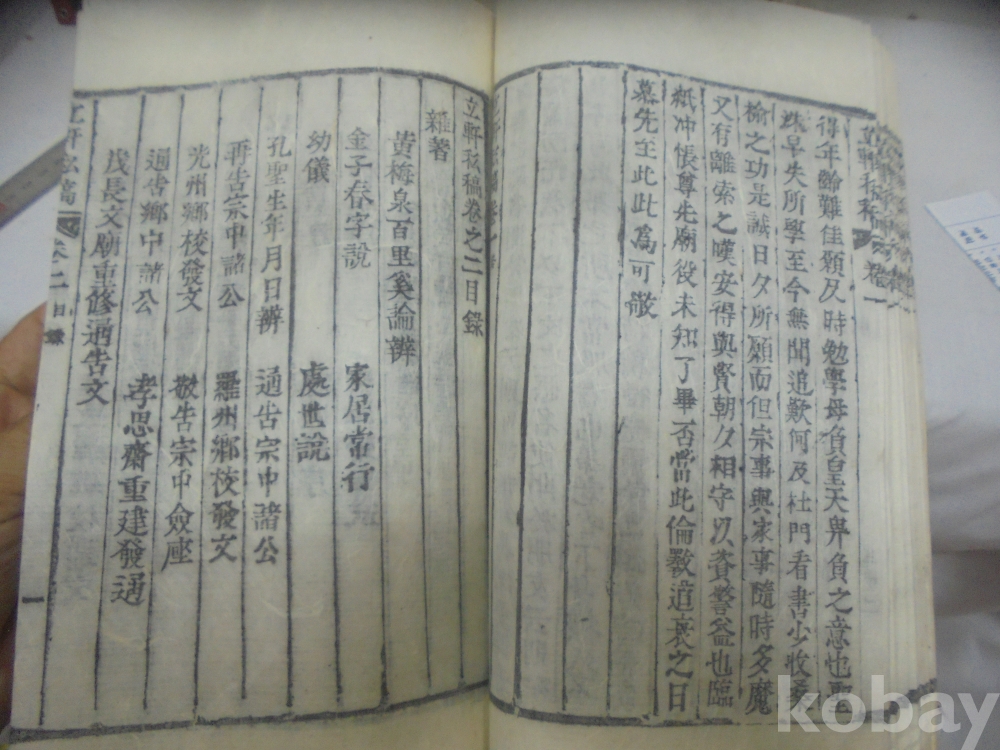 得年齡難佳願及時勉學毋負皇天畀負之意也聖
珠早失所學至今無聞追歎何及杜門看書少收桑
榆之功是誠日夕所願而但宗事與家事隨時多魔
又有離索之嘆安得與賢朝夕相守以資警益也臨
紙冲悵尊先廟役未知了畢否當此倫斁道衰之日
慕先至此此爲可敬
立軒私稿卷之二目錄
雜著
黃梅泉百里奚論辨
金子春字說 家居常行
幼儀 處世說
孔聖生年月日辨 通告宗中諸公
再告宗中諸公 羅州鄉校發文
光州鄉校發文 敬告宗中僉座
通告鄉中諸公 孝思齋重建發通
茂長文廟重修通告文
立軒私稿 卷二 目錄 一
kobay